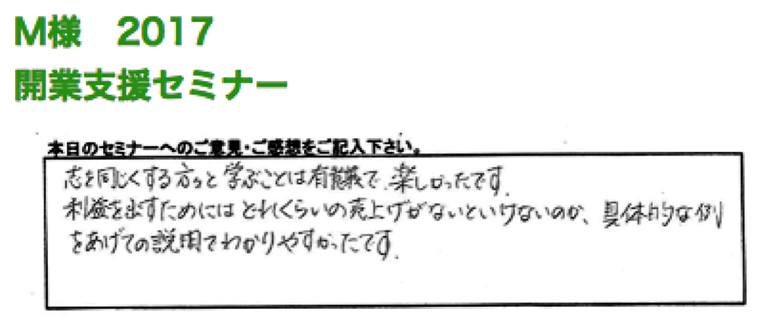 M様 2017
開業支援セミナー
本日のセミナーへのご意見・ご感想をご記入下さい。
志を同じくする方々と学ぶことは有意義で、楽しかったです。
利益を出すためにはどれくらいの売上げがないといけないのか、具体的な例
をあげての説明でわかりやすかったです。